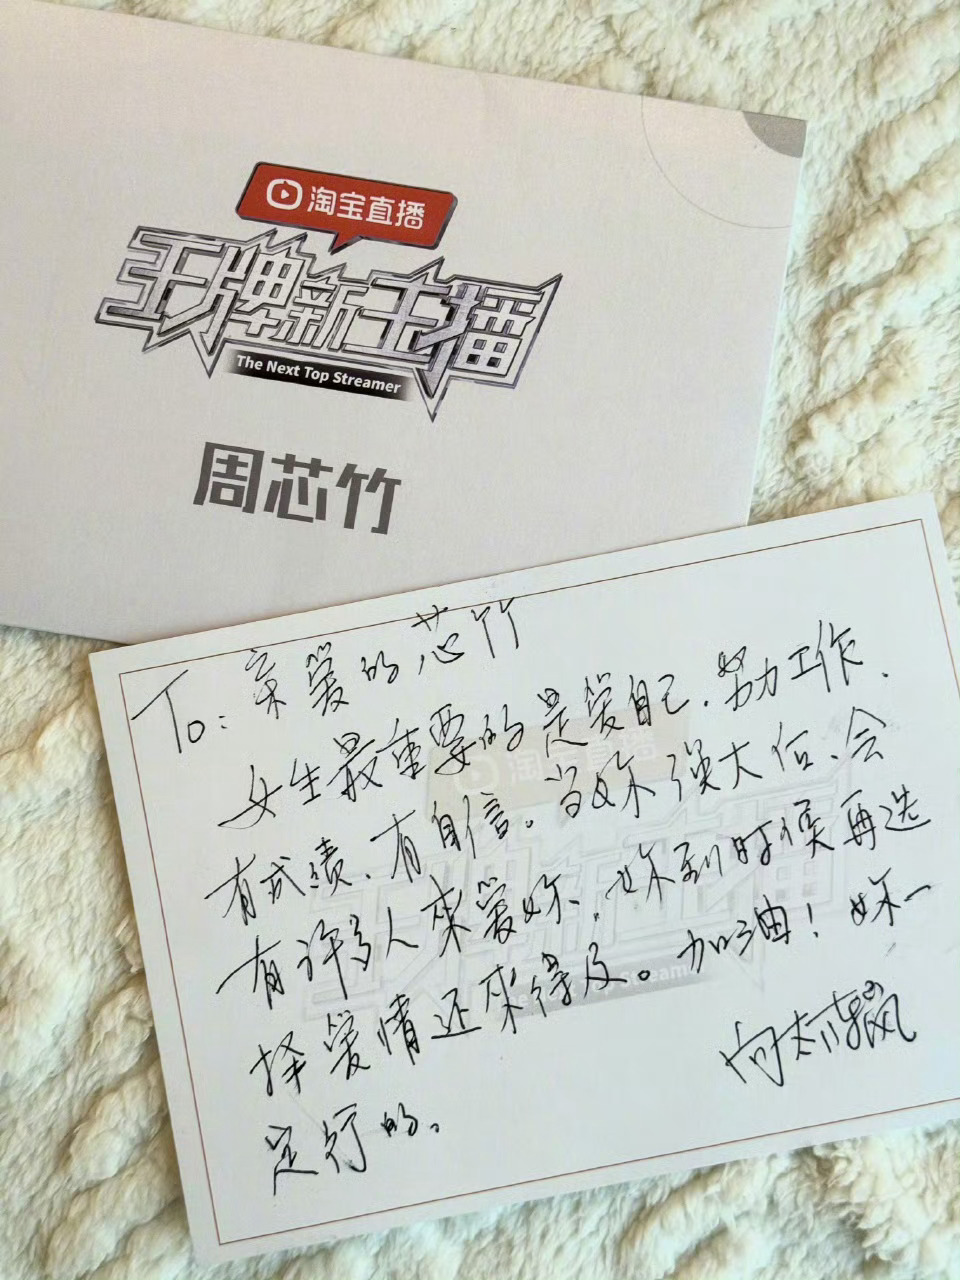 淘宝直播
王牌新主播
The Next Top Streamer
周芯竹
To: 亲爱的芯竹
女生最重要的是爱自己.努力工作、
有成绩、有自信。当妳强大后、会
有许多人來爱妳,妳到时候再选
择爱情还來得及。加油!妳一
定行的。
向太陈岚
淘宝直播